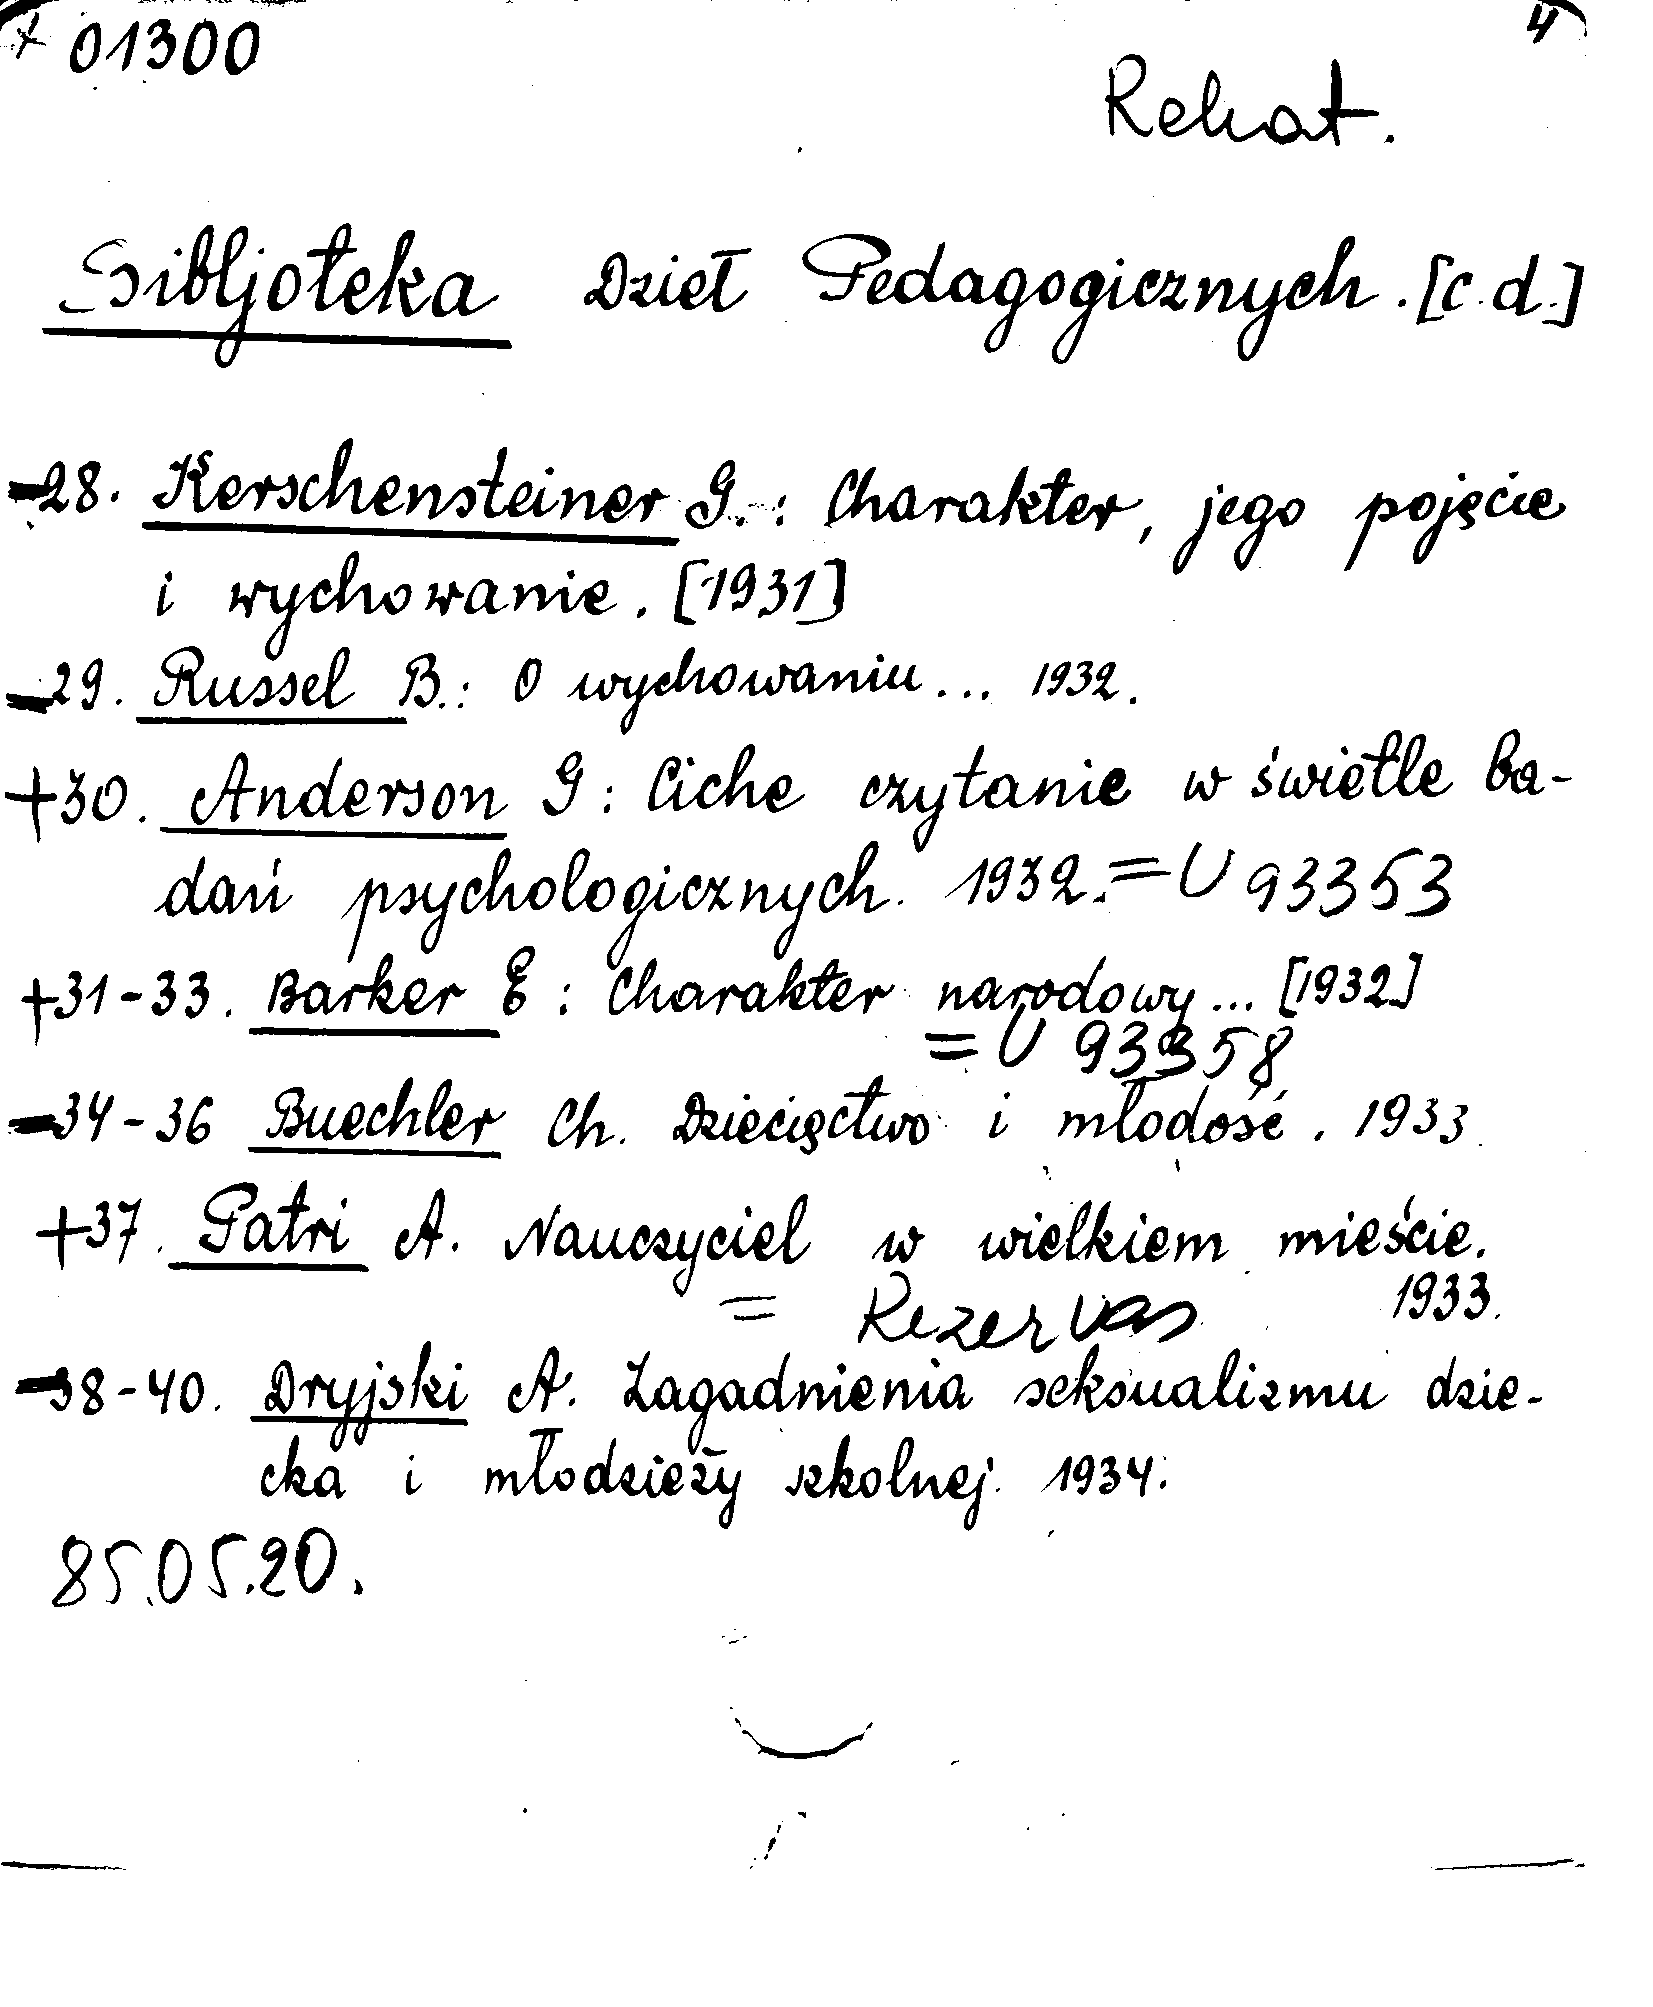 + 01300 4
Rekat.
Bibljoteka Dzieł Pedagogicznych. [c.d.]
-28. Kerschensteiner G.: Charakter, jego pojęcie
i wychowanie. [1931]
-29. Russel B.: O wychowaniu... 1932.
+30. Anderson G: Ciche czytanie w świetle ba-
dań psychologicznych. 1932. = U 93353
+31-33. Barker E: Charakter narodowy... [1932]
= U 93358
-34-36 Buechler Ch. Dziecięctwo i młodość. 1933
+37. Patri A. Nauczyciel w wielkiem mieście.
= Rezerwa 1933.
-38-40. Dryjski A. Zagadnienia seksualizmu dzie-
cka i młodzieży szkolnej. 1934.
85.05.20.